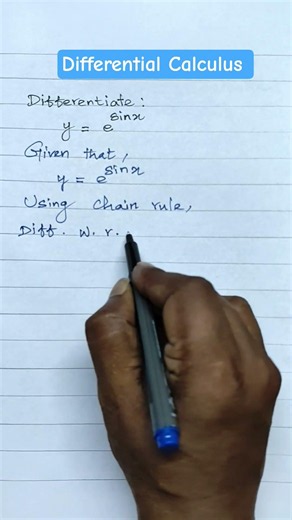 Differential Calculus
Differentiate:
y = e^sinx
Given that,
y = e^sinx
Using chain rule,
Diff. w. r.